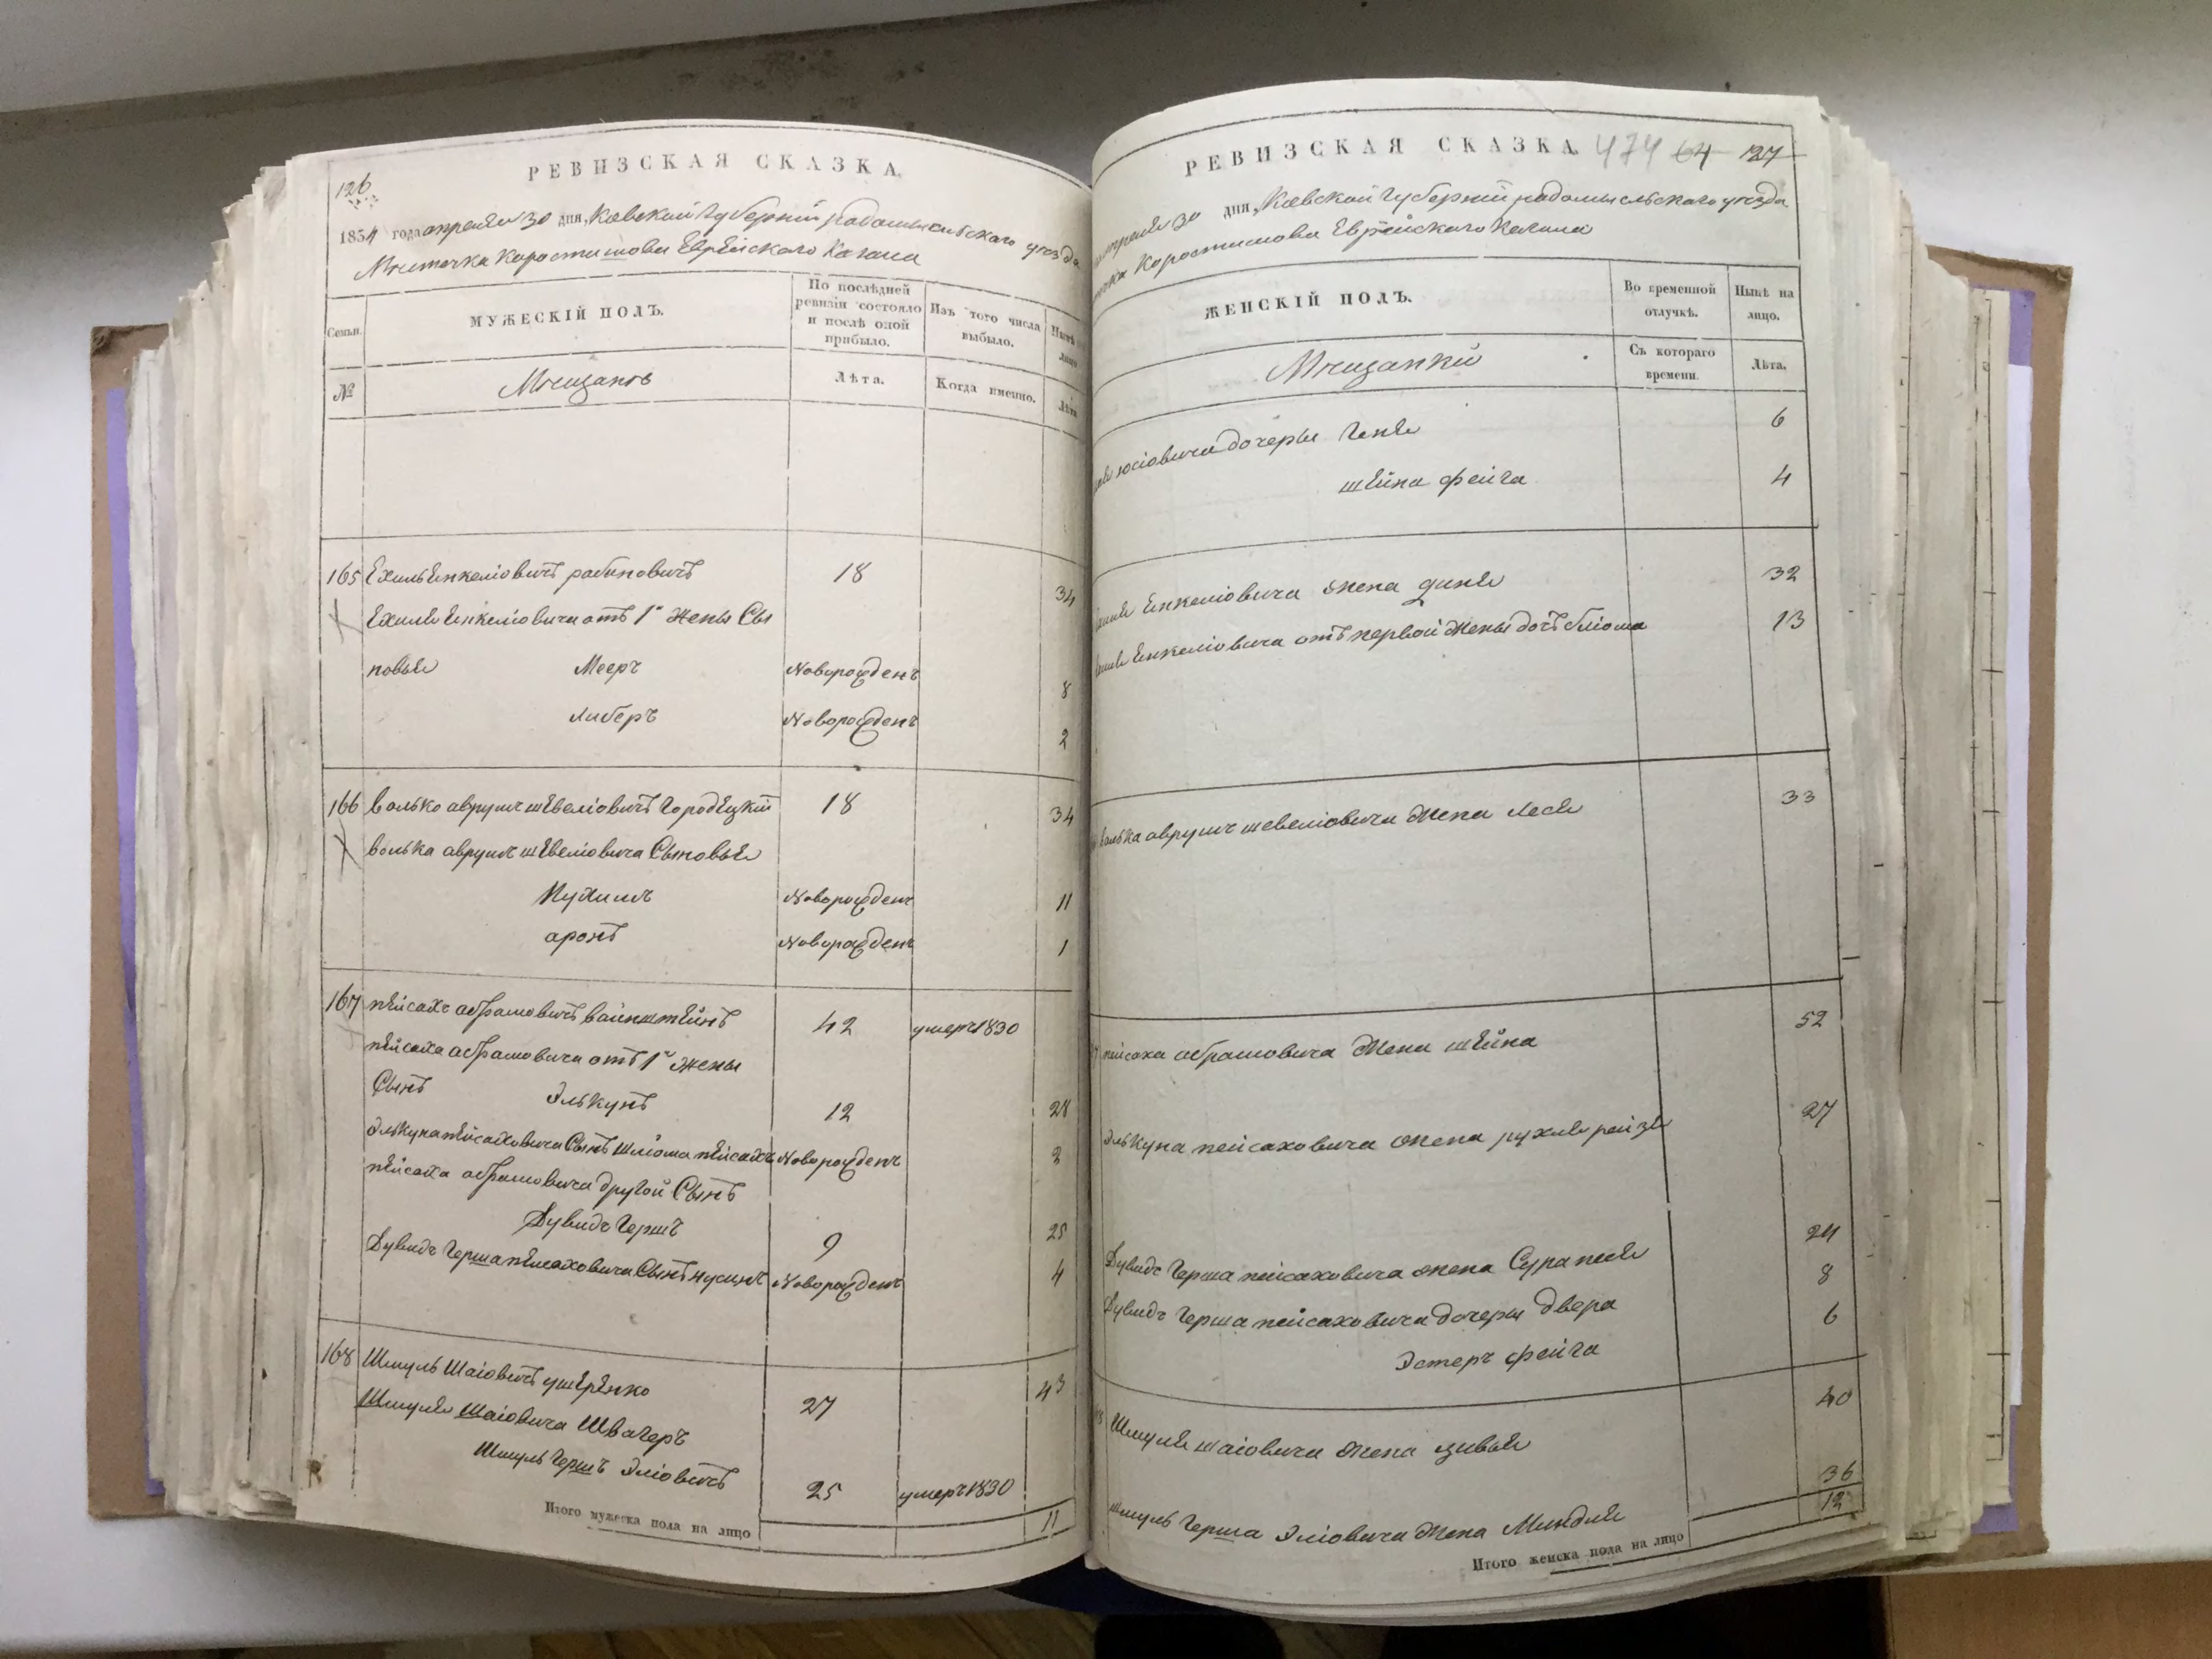 126
РЕВИЗСКАЯ СКАЗКА.
1854 года апреля 30 дня, Киевской Губернiи радомысльского уезда
Мѣстечка Коростишова Еврейского Кагала
Семьи.
МУЖЕСКIЙ ПОЛЪ.
По послѣдней ревизiи состояло и послѣ оной прибыло.
Изъ того числа выбыло.
Нынѣ на лицо
№
Мѣщанъ
Лѣта.
Когда именно.
Лѣта
165 Ехиль Енкелiовичъ рабиновичъ 18 34
Ехиля Енкелiовича отъ 1й жены Сы
новья Мееръ Новорожденъ 8
Либеръ Новорожденъ 2
166 Волько аврумъ шевелiовичъ Городецкiй 18 34
Волька аврумъ шевелiовича Сыновья
Нухимъ Новорожденъ 11
аронъ Новорожденъ 1
167 пейсахъ абрамовичъ вайнштейнъ 42 умеръ 1830
пейсаха абрамовича отъ 1й жены
Сынъ Элькунъ 12 28
Элькуна пейсаховича Сынъ шлiома пейсахъ Новорожденъ 2
пейсаха абрамовича другой Сынъ
Дувидъ Гершъ 9 25
Дувидъ Герша пейсаховича Сынъ нусинъ Новорожденъ 4
168 Шмуль Шаiовичъ ушеренко 27 43
Шмуля Шаiовича Швагеръ
Шмуль Гершъ Элiовичъ 25 умеръ 1830
Итого мужеска пола на лицо 11
РЕВИЗСКАЯ СКАЗКА. 474 64 127
апреля 30 дня, Киевской Губернiи радомысльского уезда
Коростишова Еврейского Кагала
ЖЕНСКIЙ ПОЛЪ.
Во временной отлучкѣ.
Нынѣ на лицо.
Мѣщанки
Съ котораго времени.
Лѣта.
юсiовича дочеры Геня 6
шейна фейга 4
Енкелiовича жена диня 32
Енкелiовича отъ первой жены дочъ блiома 13
волька аврумъ шевелiовича жена леся 33
пейсаха абрамовича жена шейна 52
Элькуна пейсаховича жена рухля рейзя 27
Дувидъ Герша пейсаховича жена Сура песя 24
Дувидъ Герша пейсаховича дочеры двера 8
Эстеръ фейга 6
Шмуля шаiовича жена цивья 40
шмуль Герша Элiовича жена Миндля 36
Итого женска пола на лицо 12